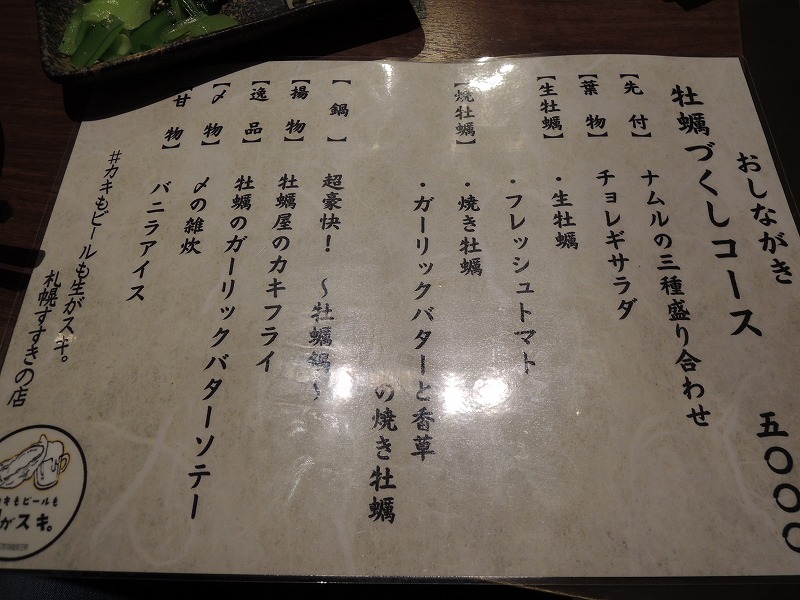 おしながき
牡蠣づくしコース 五〇〇〇
【先付】 ナムルの三種盛り合わせ
【葉物】 チョレギサラダ
【生牡蠣】 ・生牡蠣
・フレッシュトマト
【焼牡蠣】 ・焼き牡蠣
・ガーリックバターと香草
の焼き牡蠣
【鍋】 超豪快！ ～牡蠣鍋～
【揚物】 牡蠣屋のカキフライ
【逸品】 牡蠣のガーリックバターソテー
【〆物】 〆の雑炊
【甘物】 バニラアイス
#カキもビールも生がスキ。
札幌すすきの店
キもビールも
がスキ。